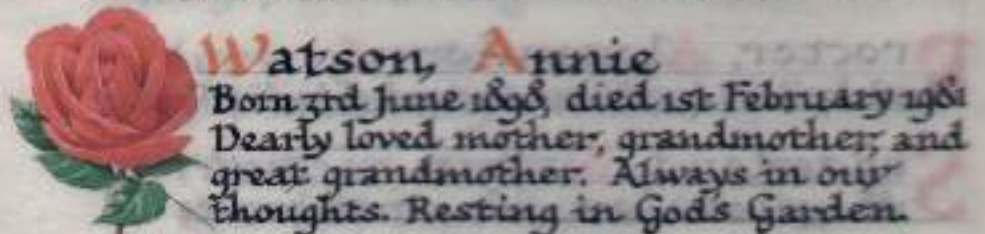 Watson, Annie
Born 3rd June 1898, died 1st February 1981
Dearly loved mother, grandmother, and
great grandmother. Always in our
thoughts. Resting in God's Garden.